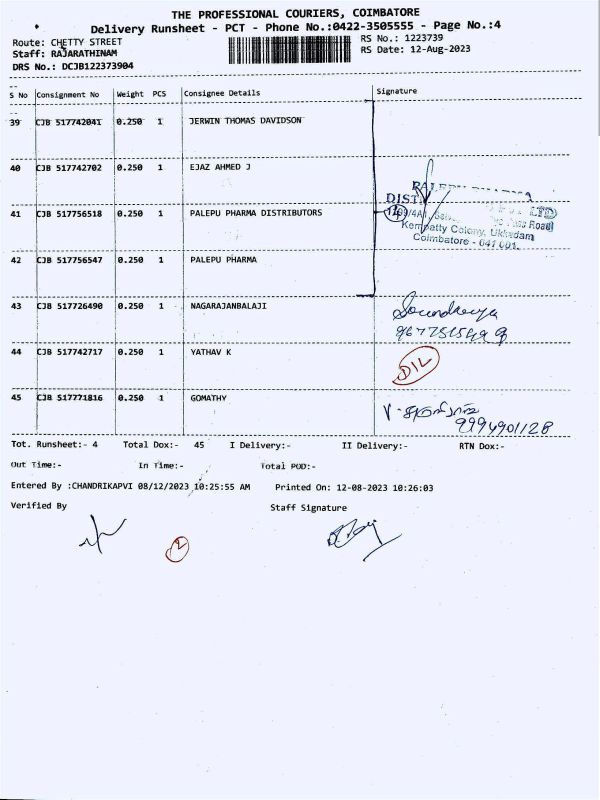 THE PROFESSIONAL COURIERS, COIMBATORE
Delivery Runsheet - PCT - Phone No.:0422-3505555 - Page No.:4
Route: CHETTY STREET RS No.: 1223739
Staff: RAJARATHINAM RS Date: 12-Aug-2023
DRS No.: DCJB122373904
S No Consignment No Weight PCS Consignee Details Signature
39 CJB 517742041 0.250 1 JERWIN THOMAS DAVIDSON
40 CJB 517742702 0.250 1 EJAZ AHMED J
PALEPU PHARMA
DIST LTD
41 CJB 517756518 0.250 1 PALEPU PHARMA DISTRIBUTORS
Pass Road
Kempatty Colony, Ukkadam
Coimbatore - 641 001.
42 CJB 517756547 0.250 1 PALEPU PHARMA
43 CJB 517726490 0.250 1 NAGARAJANBALAJI
Soundarya
44 CJB 517742717 0.250 1 YATHAV K D/L
45 CJB 517771816 0.250 1 GOMATHY
9994901128
Tot. Runsheet:- 4 Total Dox:- 45 I Delivery:- II Delivery:- RTN Dox:-
Out Time:- In Time:- Total POD:-
Entered By :CHANDRIKAPVI 08/12/2023 10:25:55 AM Printed On: 12-08-2023 10:26:03
Verified By Staff Signature